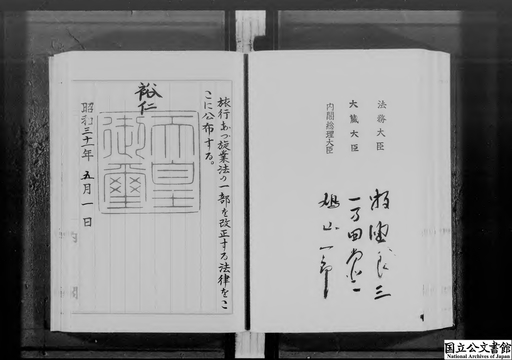 法務大臣 牧野良三
大蔵大臣 一万田尚登
内閣総理大臣 鳩山一郎
旅行あつ旋業法の一部を改正する法律をこ
こに公布する。
裕仁
天皇
御璽
昭和三十一年 五月一日
国立公文書館
National Archives of Japan